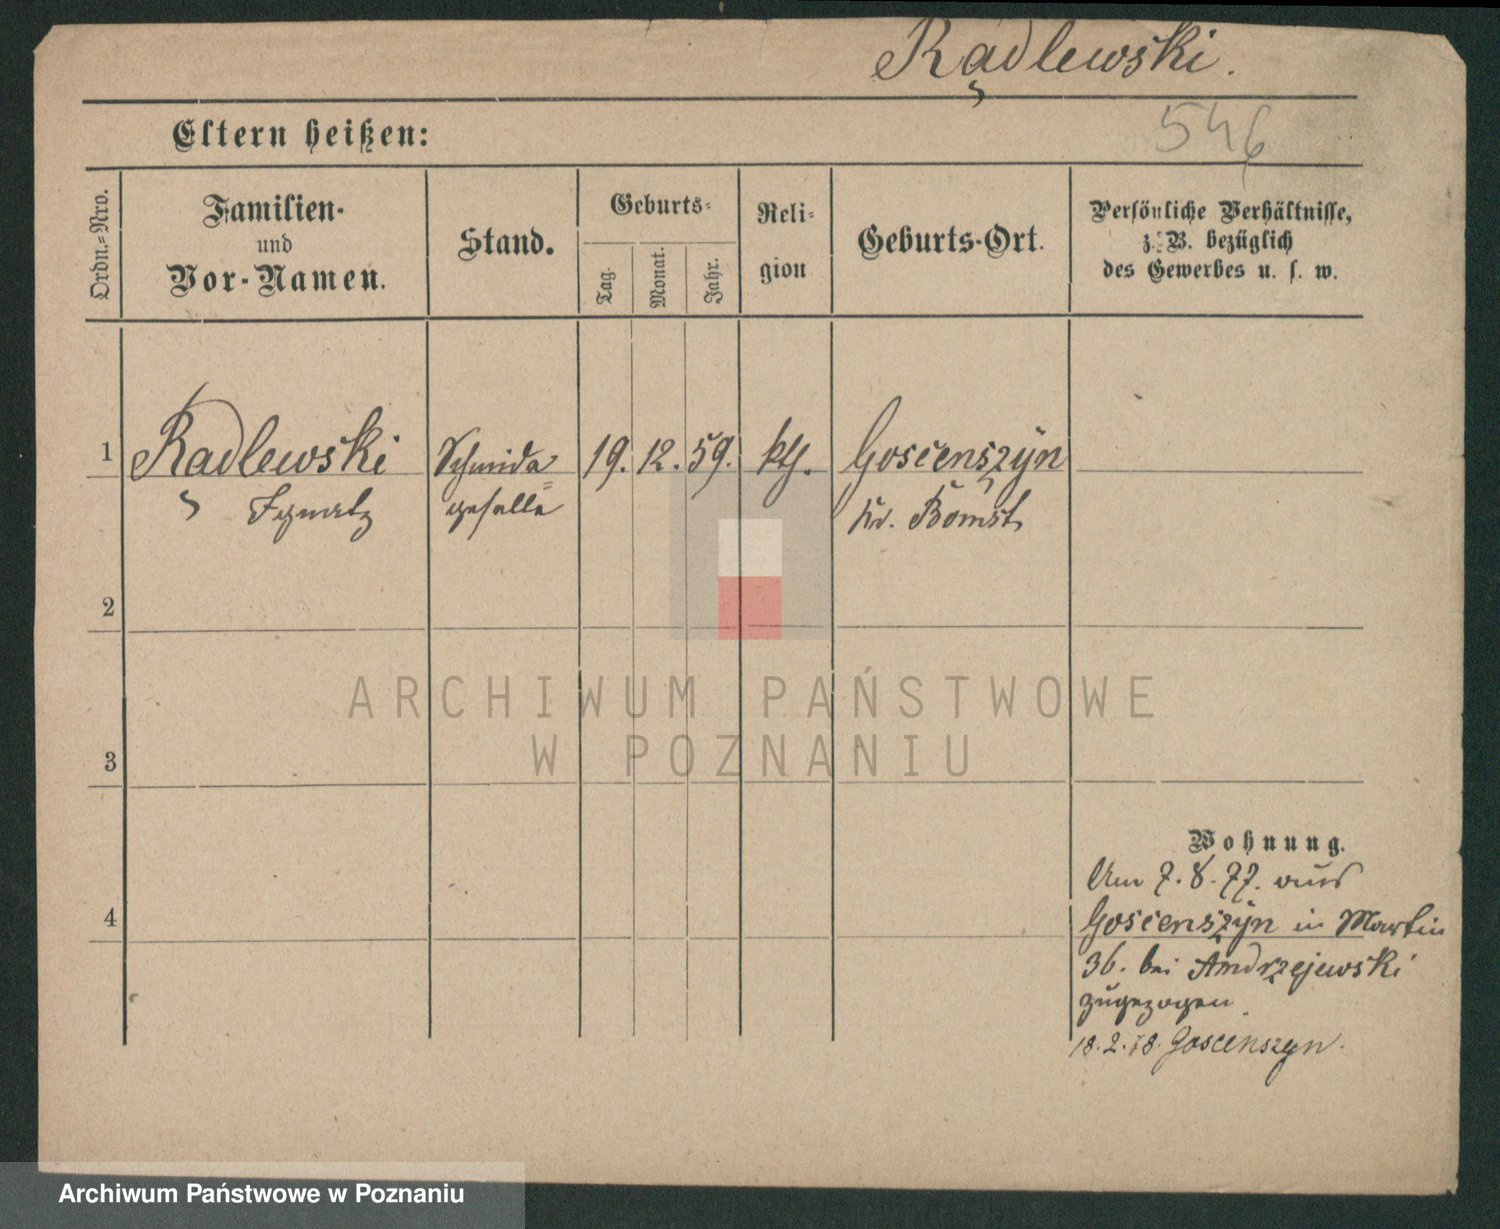 Radlewski.
546
Eltern heißen:
Ordn.=Nro.
Familien-
und
Vor-Namen.
Stand.
Geburts-
Tag.
Monat.
Jahr.
Reli-
gion
Geburts-Ort.
Persönliche Verhältnisse,
z. B. bezüglich
des Gewerbes u. s. w.
1 Radlewski Schmide 19. 12. 59. kth. Goscenszyn
Ignatz geselle Kr. Bomst
2
3
4
Wohnung.
Am 7. 8. 77. aus
Goscenszyn in Martin
36. bei Andrzejewski
zugezogen
18. 2. 78. Goscenszyn.
ARCHIWUM PAŃSTWOWE
W POZNANIU
Archiwum Państwowe w Poznaniu